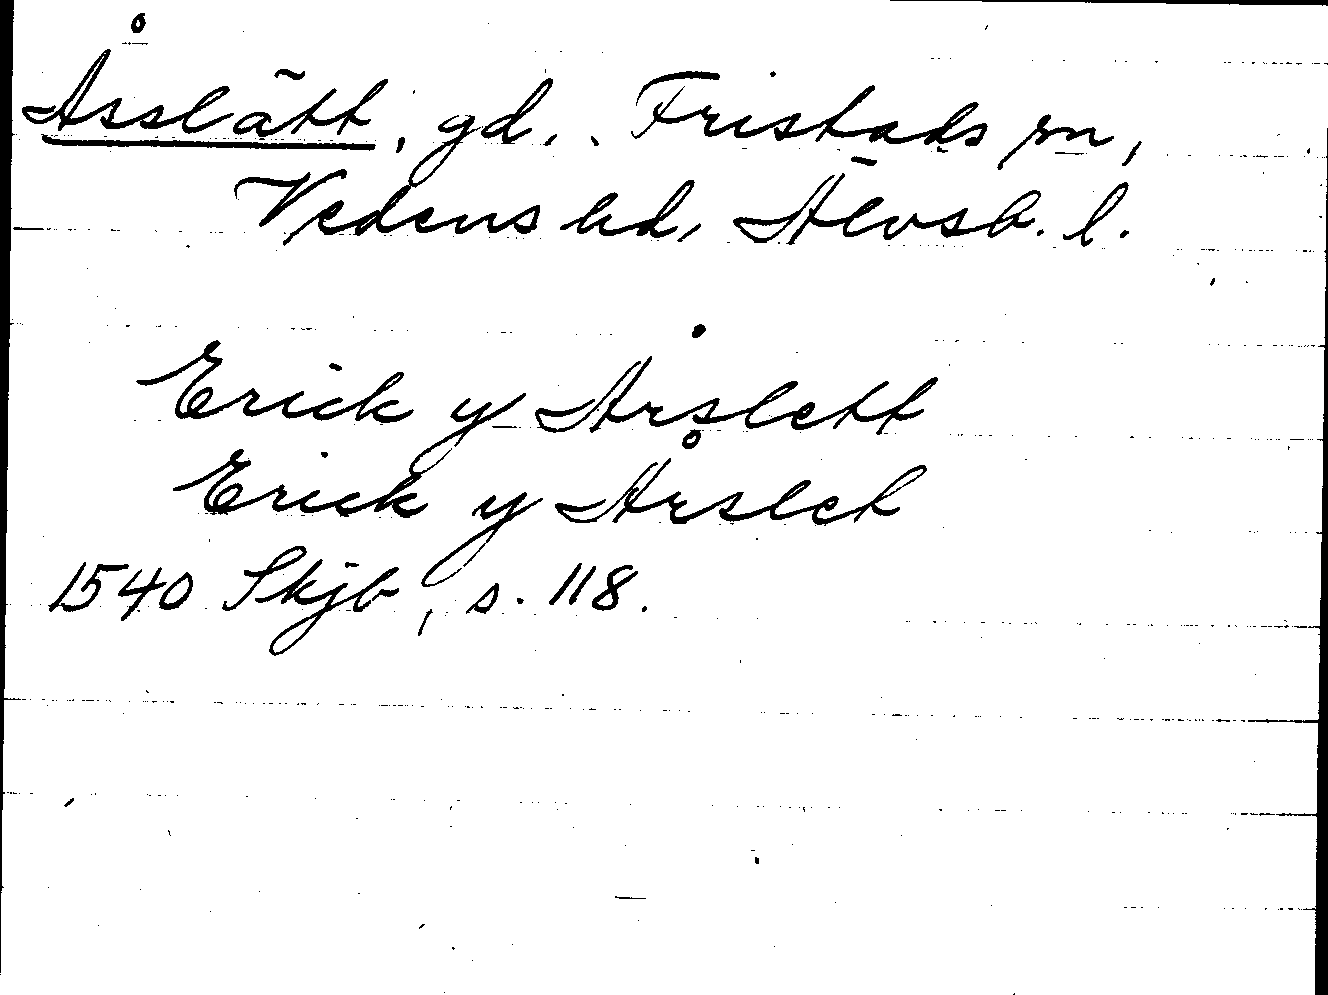 Åsslätt, gd, Fristads sn,
Vedens hd, Älvsb. l.
Erick y Årslett
Erick y Årslet
1540 Skjb, s. 118.